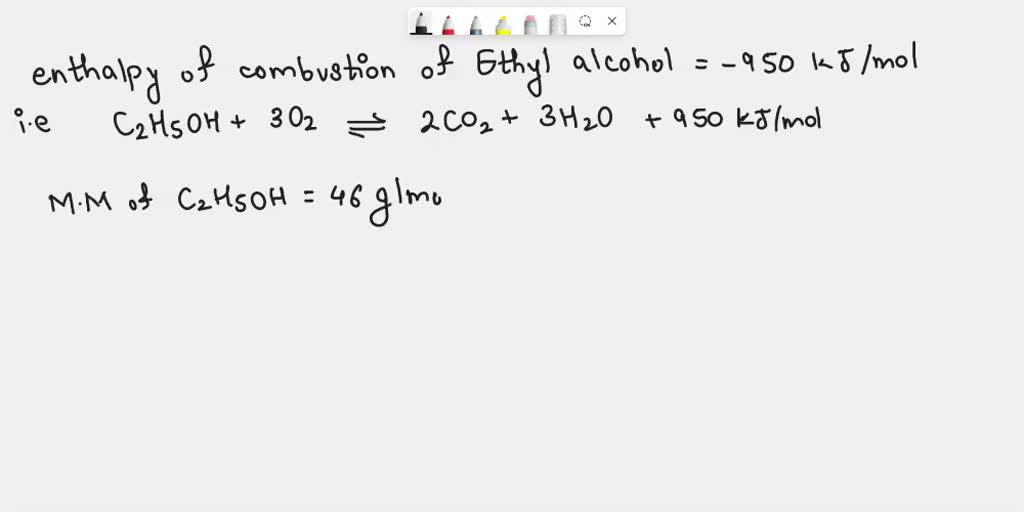 enthalpy of combustion of Ethyl alcohol = -950 kJ/mol
i.e C2H5OH + 3O2 ⇌ 2CO2 + 3H2O + 950 kJ/mol
M.M of C2H5OH = 46 g/mo